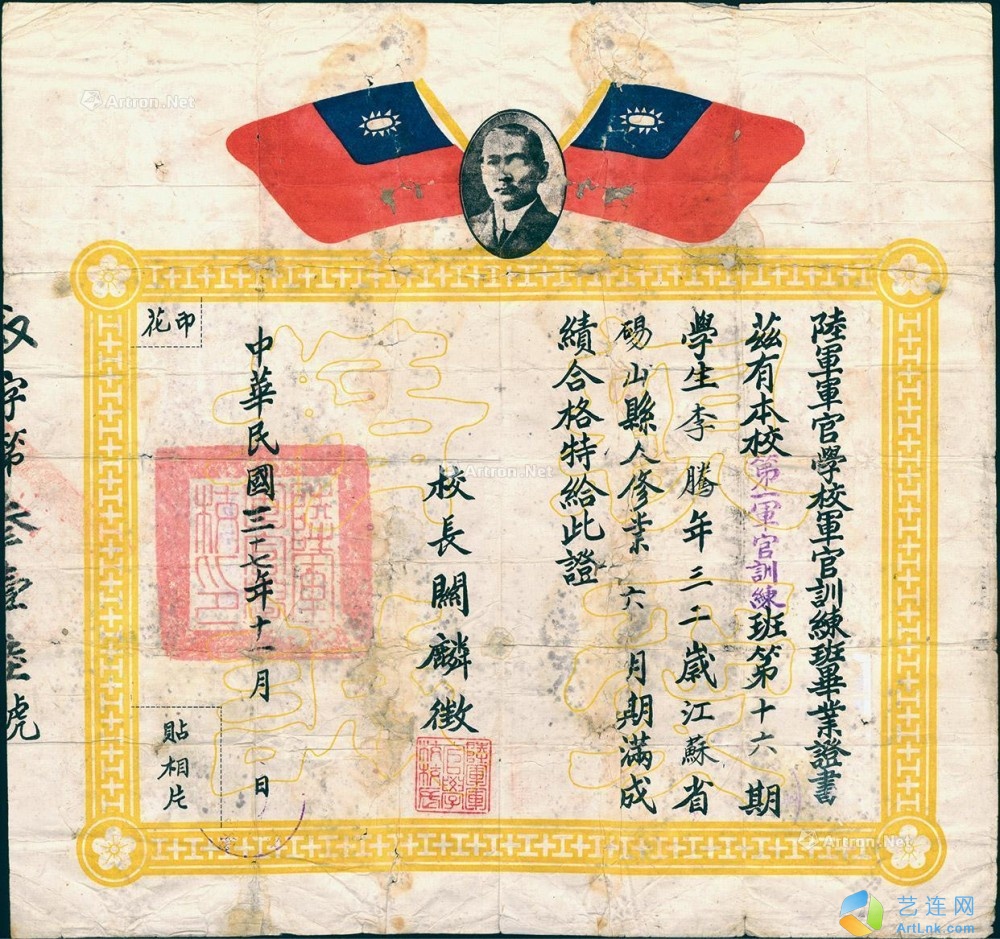 陸軍軍官學校軍官訓練班畢業證書
茲有本校第一軍官訓練班第十六期
學生李騰年三二歲江蘇省
碭山縣人修業六月期滿成
績合格特給此證
校長關麟徵
陸軍軍官學校校長
中華民國三十七年十一月 日
印花
貼相片
字第叁壹陸號
Artron.Net
Artron.Net
Artron.Net
Artron.Net
Artron.Net
艺连网
ArtLnk.com